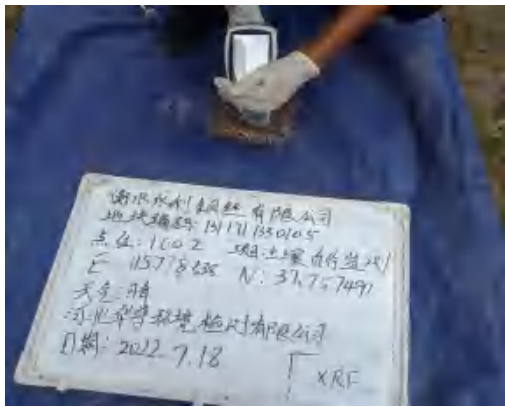 衡水水利钢丝有限公司
地块编码: 1311711330105
点位: 1C02 项目: 土壤自行监测
E 115.778638 N: 37.757497
天气: 晴
河北华清环境检测有限公司
日期: 2022.7.18
XRF